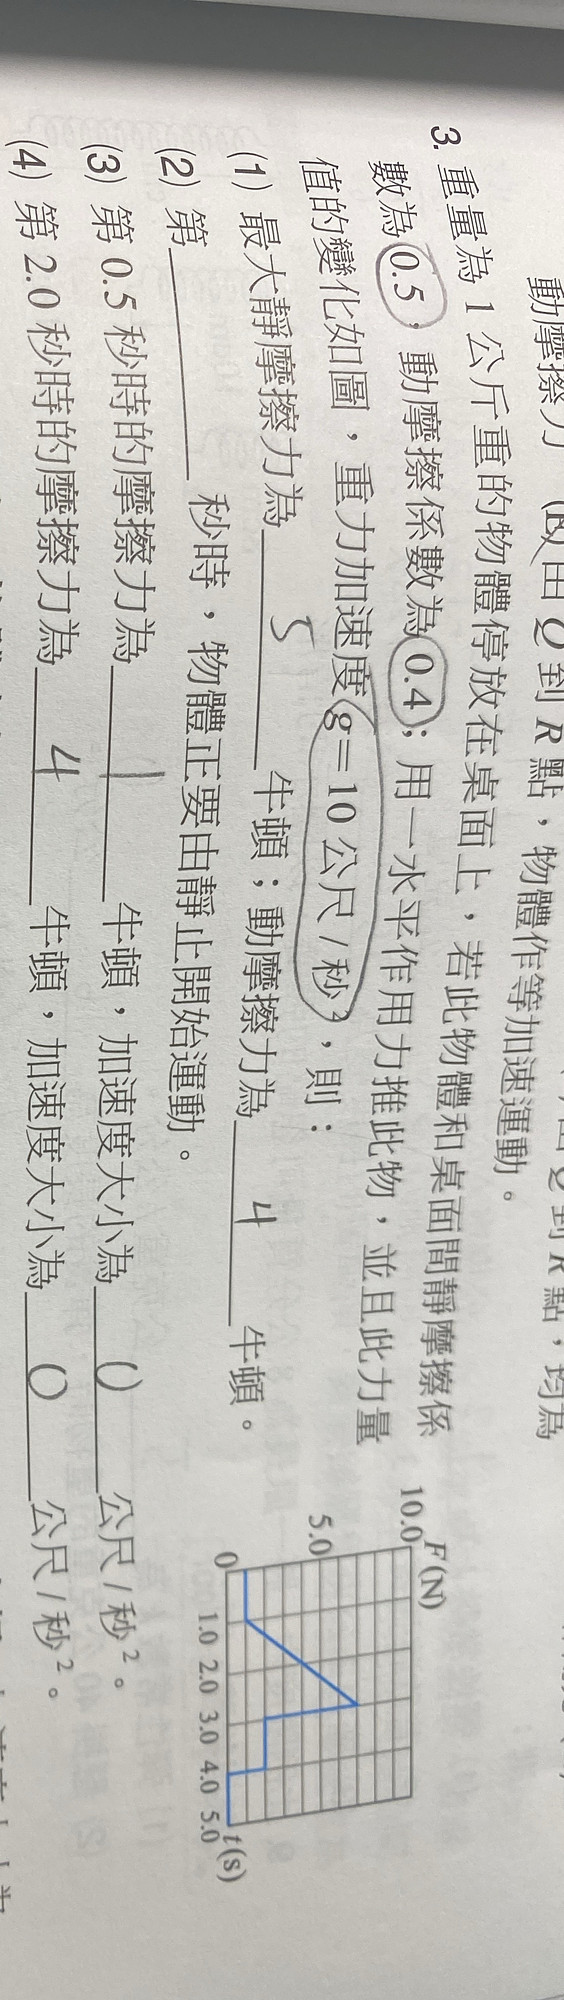 動摩擦力 (E)由 Q 到 R 點，物體作等加速運動。
3. 重量為 1 公斤重的物體停放在桌面上，若此物體和桌面間靜摩擦係
數為 0.5，動摩擦係數為 0.4；用一水平作用力推此物，並且此力量
值的變化如圖，重力加速度 g＝10 公尺/秒²，則：
(1) 最大靜摩擦力為 5 牛頓；動摩擦力為 4 牛頓。
(2) 第＿＿＿秒時，物體正要由靜止開始運動。
(3) 第 0.5 秒時的摩擦力為 1 牛頓，加速度大小為 0 公尺/秒²。
(4) 第 2.0 秒時的摩擦力為 4 牛頓，加速度大小為 0 公尺/秒²。
F(N)
10.0
5.0
0
1.0 2.0 3.0 4.0 5.0
t(s)